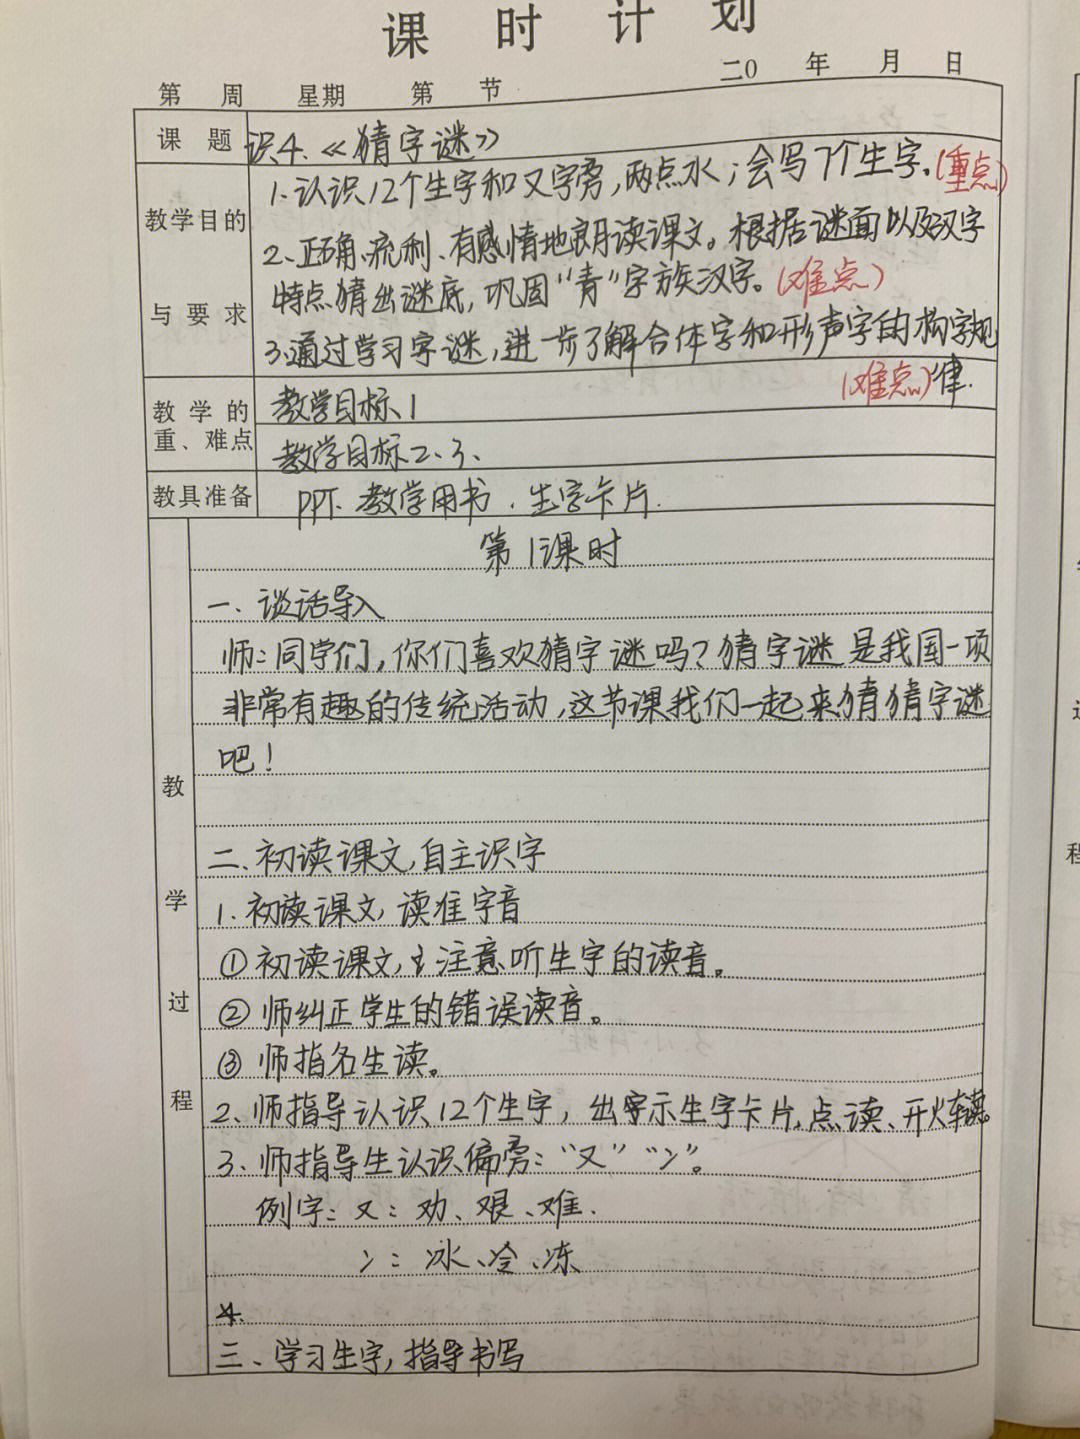 课时计划
二0 年 月 日
第 周 星期 第 节
课 题 识4.《猜字谜》
教学目的与要求
1.认识12个生字和又字旁,两点水;会写7个生字.(重点)
2、正确、流利、有感情地朗读课文。根据谜面以及汉字
特点猜出谜底,巩固“青”字族汉字。(难点)
3.通过学习字谜,进一步了解合体字和形声字的构字规
(难点)律.
教学的重、难点
教学目标1
教学目标2、3、
教具准备 PPT. 教学用书.生字卡片.
第1课时
教学过程
一、谈话导入
师:同学们,你们喜欢猜字谜吗?猜字谜是我国一项
非常有趣的传统活动,这节课我们一起来猜猜字谜
吧!
二、初读课文,自主识字
1.初读课文,读准字音
①初读课文,注意听生字的读音。
②师纠正学生的错误读音。
③师指名生读。
2、师指导认识12个生字,出示生字卡片,点读、开火车读。
3、师指导生认识偏旁:“又”“冫”。
例字:又:劝、艰、难.
冫:冰、冷、冻
4.
三、学习生字,指导书写
程